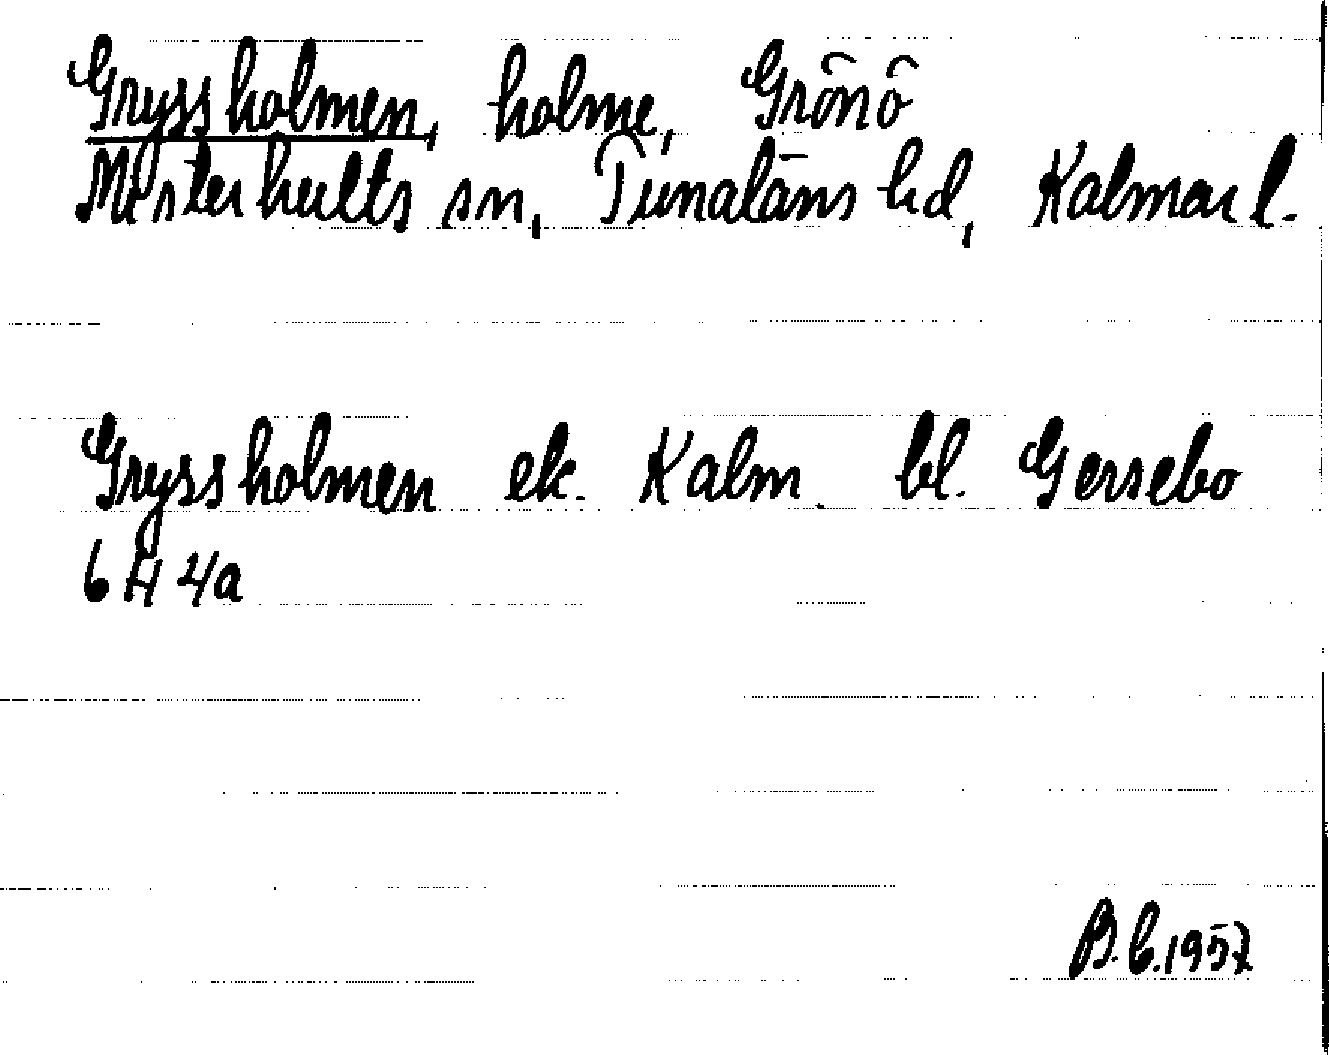 Gryssholmen, holme, Grönö
Misterhults sn, Tunaläns hd, Kalmar l.
Gryssholmen ek. Kalm. bl. Gersebo
6 H 4a
B. C. 1957